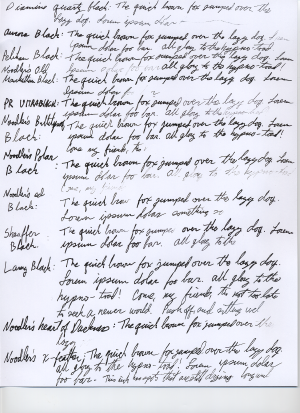 Diamine quartz black: The quick brown fox jumped over the
lazy dog. Lorem ipsum dolar
Aurora Black: The quick brown fox jumped over the lazy dog. Lorem
ipsum dolar foo bar. all glory to the hypno-toad
Pelikan Black: The quick brown fox jumped over the lazy dog. Lorem
Noodler's Old ipsum dolar foo bar. all glory to the hypno-toad
Manhattan Black: The quick brown fox jumped over the lazy dog. Lorem
ipsum dolar
PR : The quick brown fox jumped over the lazy dog. Lorem
ipsum dolar foo bar. all glory to the
Noodler's Bulletproof The quick brown fox jumped over the lazy dog. Lorem
Black: ipsum dolar foo bar. all glory to the hypno-toad!
Come my friends,
Noodler's Polar : The quick brown fox jumped over the lazy dog. Lorem
Black ipsum dolar foo bar. all glory to the hypno-toad
Come, my
Noodler's The quick brown fox jumped over the lazy dog.
Black: Lorem ipsum dolar something
Sheaffer The quick brown fox jumped over the lazy dog. Lorem
Black ipsum dolar foo bar. all glory to the
Lamy Black: The quick brown fox jumped over the lazy dog.
Lorem ipsum dolar foo bar. all glory to the
hypno-toad! Come, my friends, tis not too late
to seek a newer world. Push off, and sitting well
Noodler's heart of Darkness: The quick brown fox jumped over the
lazy
Noodler's X-feather: The quick brown fox jumped over the lazy dog.
all glory to the hypno-toad! Lorem ipsum, dolar
foo bar. This ink